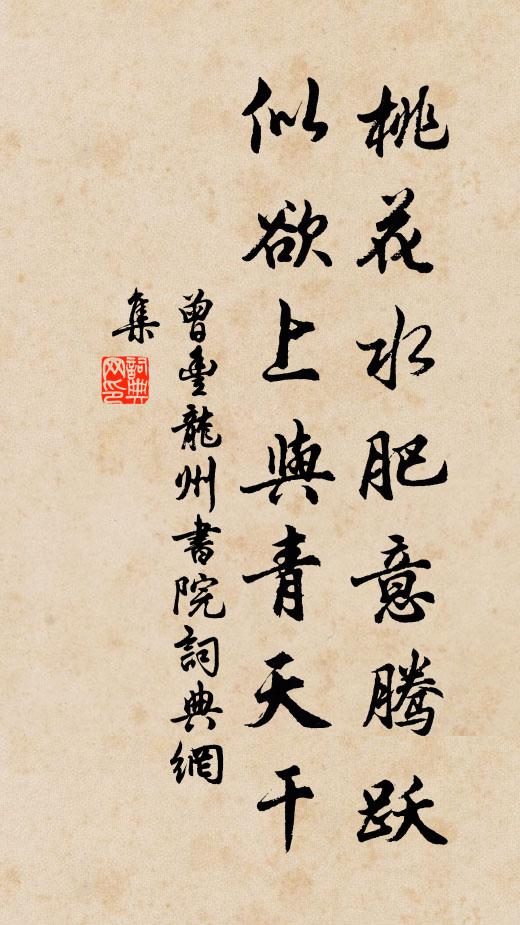 桃花水肥意腾跃
似欲上與青天干
曾豐龍州書院詞典網
集
詞典网印